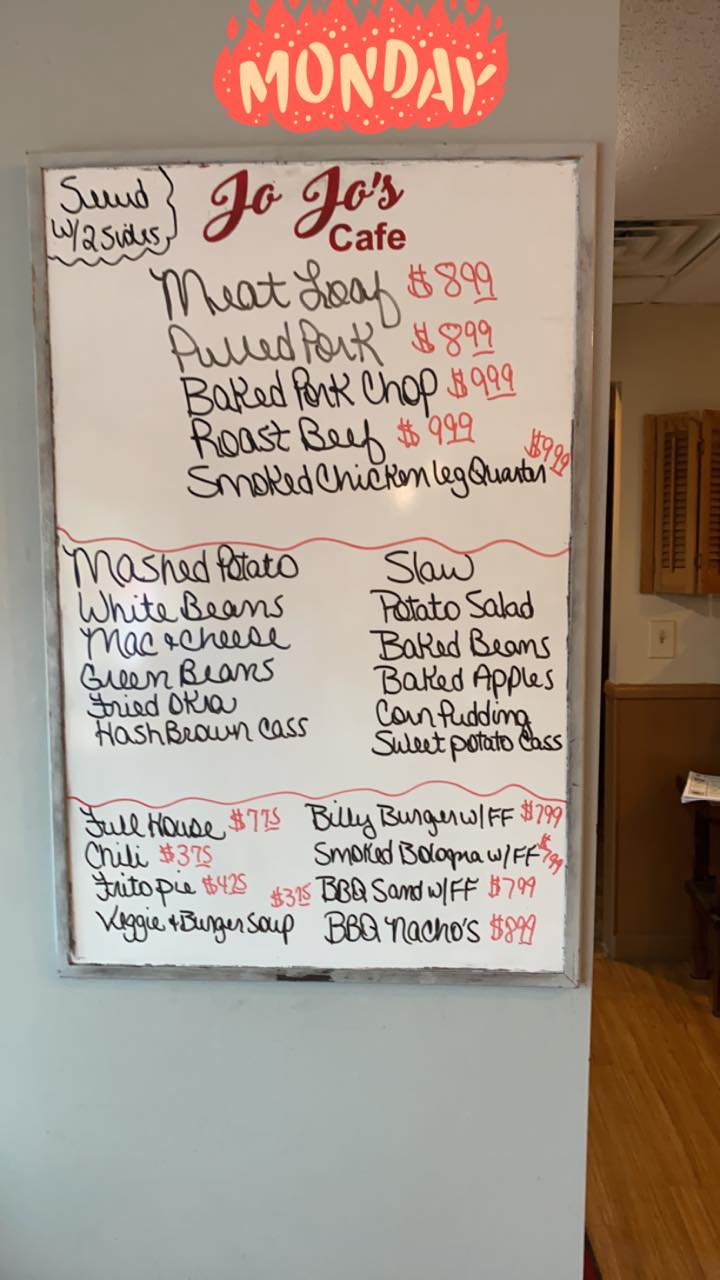 MONDAY
Served
W/2 Sides
Jo Jo's
Cafe
Meat Loaf $8.99
Pulled Pork $8.99
Baked Pork Chop $9.99
Roast Beef $9.99
Smoked Chicken leg Quarter $9.99
Mashed Potato
White Beans
Mac & Cheese
Green Beans
Fried OKra
HashBrown Cass
Slaw
Potato Salad
Baked Beans
Baked Apples
Corn Pudding
Sweet potato Cass
Full House $7.75
Chili $3.75
Frito pie $4.25
Veggie & Burger Soup $3.75
Billy Burger w/ FF $7.99
Smoked Bologna w/ FF $7.99
BBQ Sand w/ FF $7.99
BBQ Nacho's $8.99